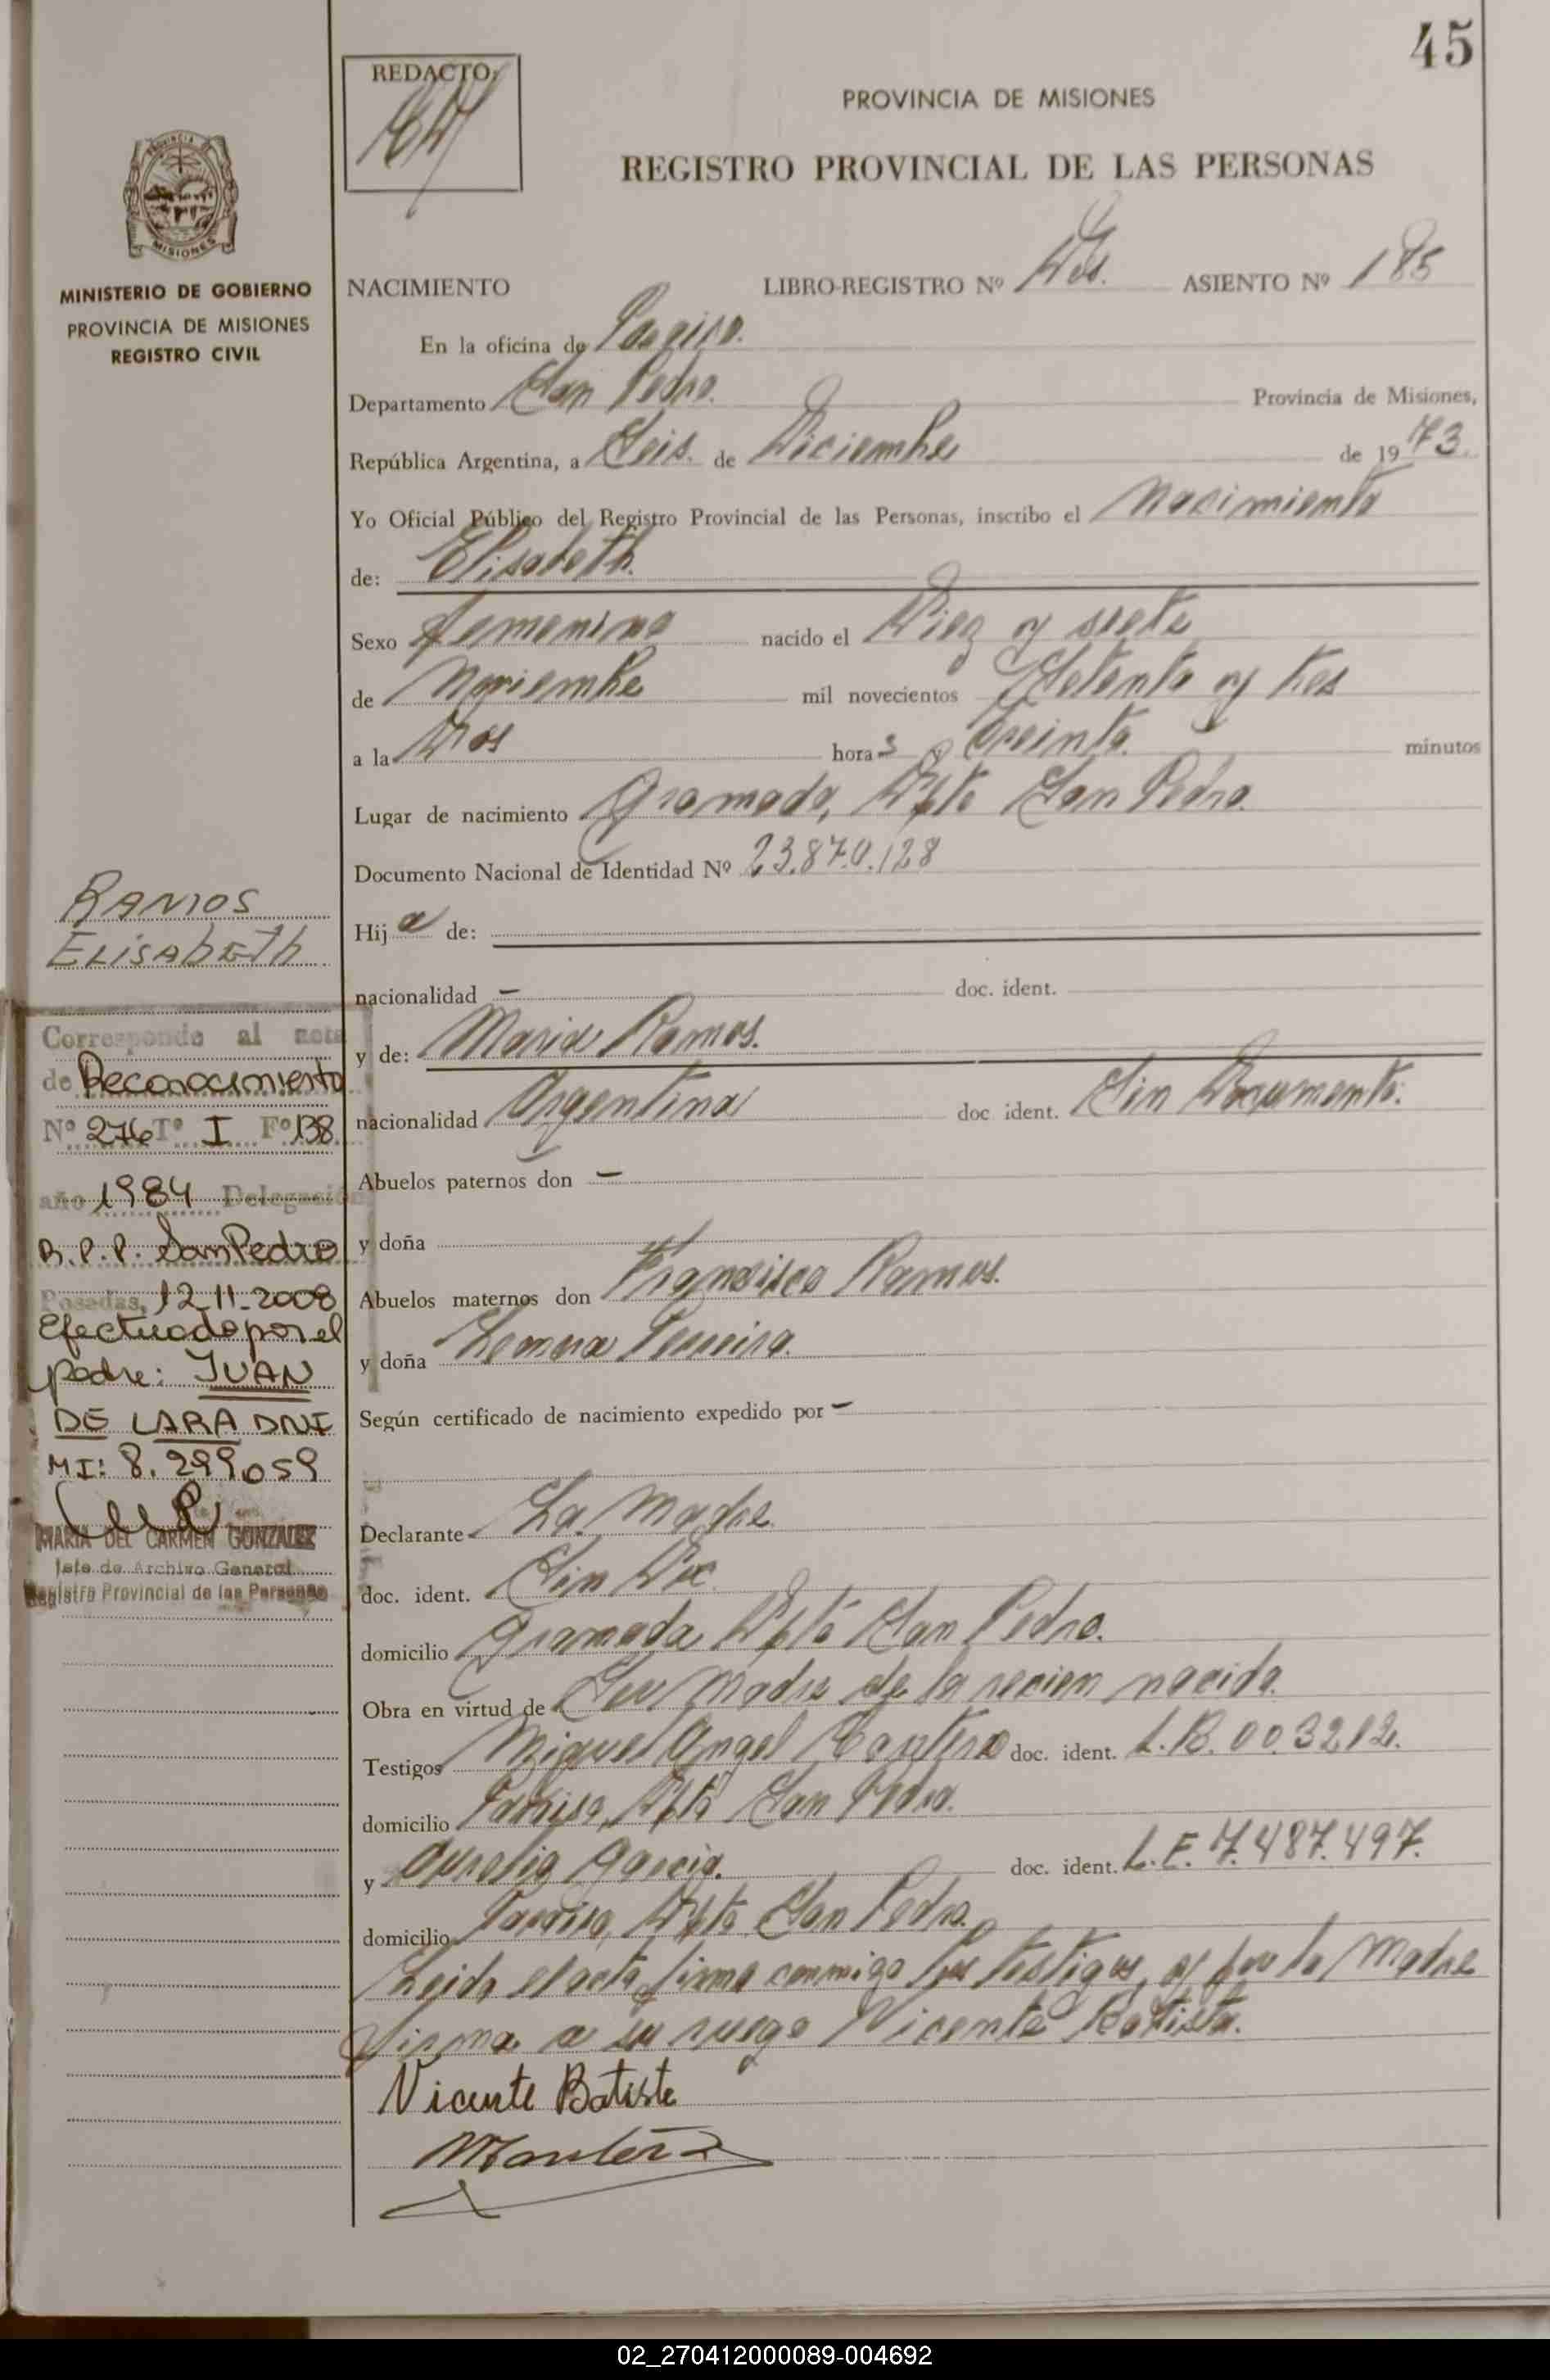 45
REDACTO:
PROVINCIA DE MISIONES
REGISTRO PROVINCIAL DE LAS PERSONAS
PROVINCIA DE MISIONES
MINISTERIO DE GOBIERNO
PROVINCIA DE MISIONES
REGISTRO CIVIL
NACIMIENTO LIBRO-REGISTRO Nº Dos. ASIENTO Nº 185
En la oficina de
Departamento San Pedro. Provincia de Misiones,
República Argentina, a Seis. de Diciembre de 1973.
Yo Oficial Público del Registro Provincial de las Personas, inscribo el Nacimiento
de: Elisabeth.
Sexo Femenino nacido el Diez y siete
de Noviembre mil novecientos Setenta y tres
a la Dos horas y treinta. minutos
Lugar de nacimiento Gramado, Dpto San Pedro.
Documento Nacional de Identidad Nº 23.870.128
RAMOS
ELISABETH
Hija de:
nacionalidad - doc. ident.
y de: Maria Ramos.
nacionalidad Argentina doc. ident. Sin Documento.
Abuelos paternos don -
y doña
Abuelos maternos don Francisco Ramos.
y doña
Según certificado de nacimiento expedido por -
Corresponde al acta
de Reconocimiento
Nº 276 Tº I Fº 138
año 1984 Delegación
R.P.P. San Pedro
Posadas, 12-11-2008
Efectuado por el
padre: JUAN
DE LARA DNI
MI: 8.299.059
MARIA DEL CARMEN GONZALEZ
Jefe de Archivo General
Registro Provincial de las Personas
Declarante La Madre
doc. ident. Sin Doc.
domicilio Gramado Dpto San Pedro.
Obra en virtud de Ser Madre de la recien nacida.
Testigos Miguel Angel doc. ident. L.B. 003212.
domicilio Dpto San Pedro.
y Aurelio Garcia. doc. ident. L.E. 7.487.497.
domicilio Dpto San Pedro.
Leida el acta firma conmigo los testigos, y por la Madre
firma a su ruego Vicente Batista.
Vicente Batiste